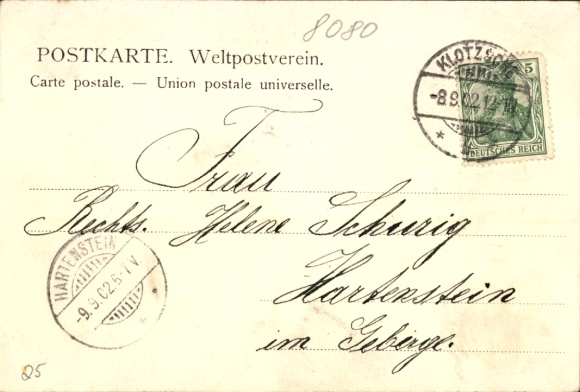 8080
POSTKARTE. Weltpostverein.
Carte postale. — Union postale universelle.
KLOTZSCHE
-8.9.02.12-
5
DEUTSCHES REICH
Frau
Rechts. Helene Schurig
HARTENSTEIN
-9.9.02.6-7V.
Hartenstein
im Gebirge.
25